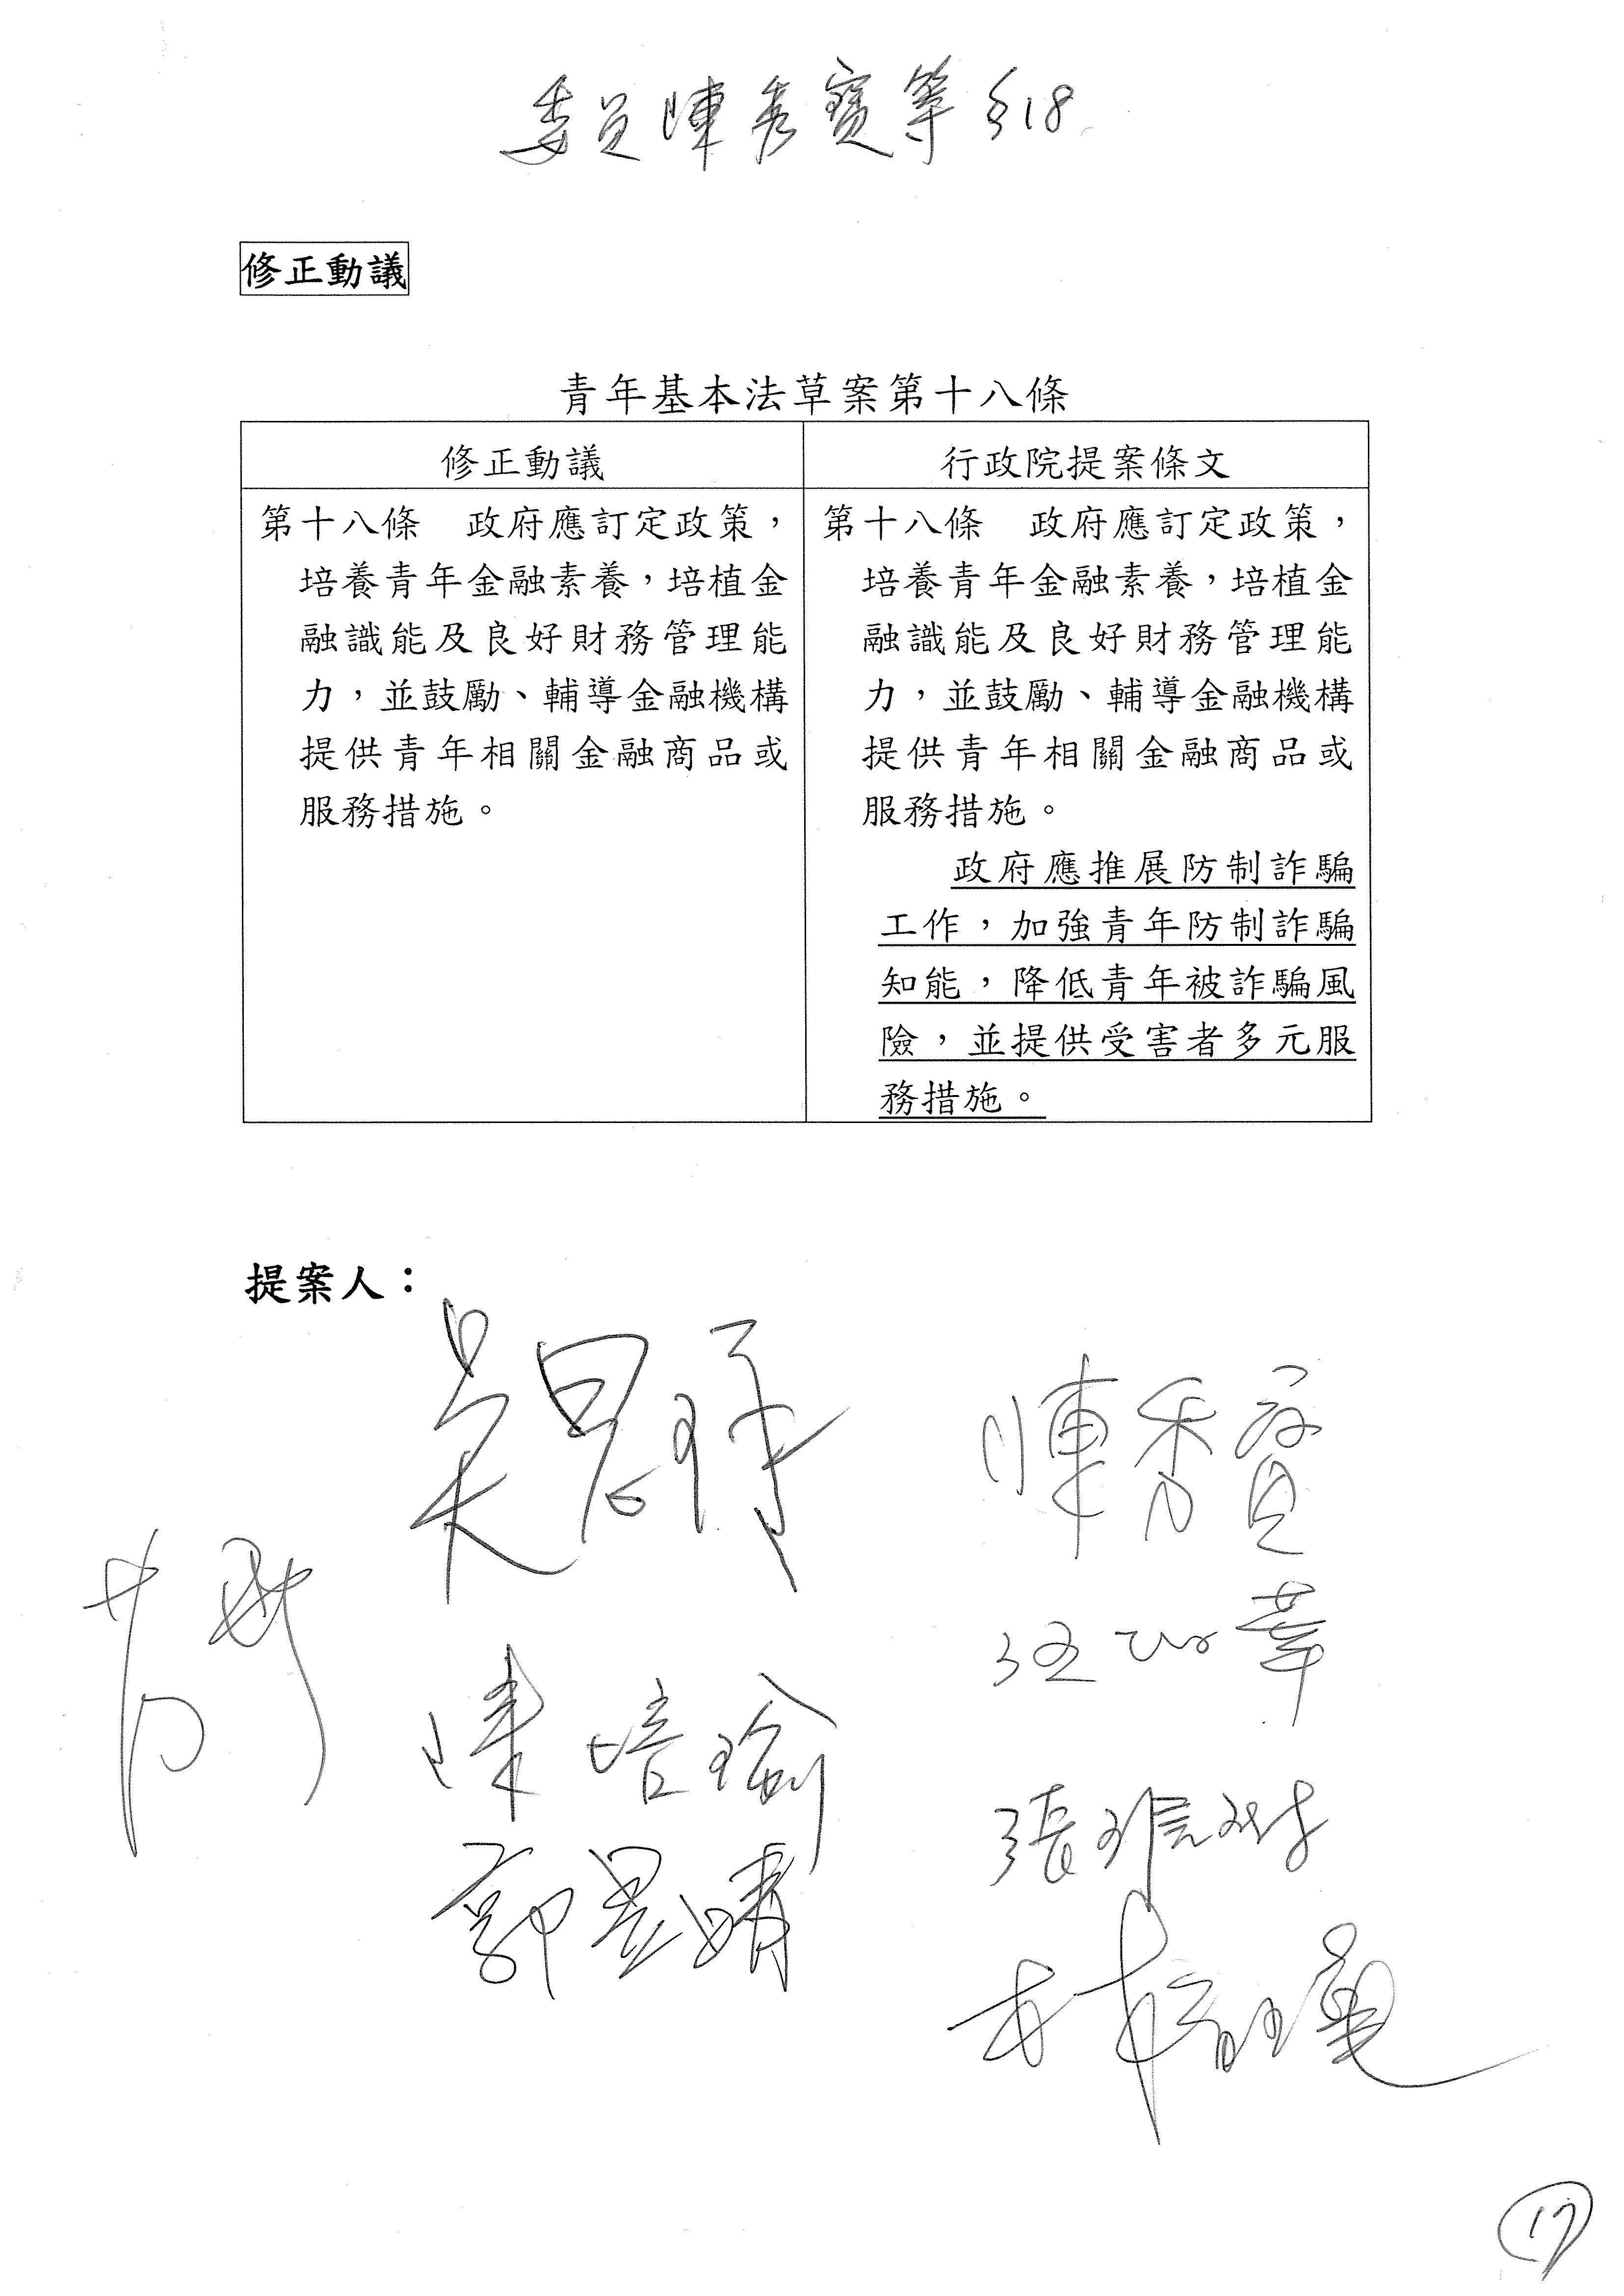 委員陳秀寳等 §18
修正動議
青年基本法草案第十八條
修正動議
第十八條　政府應訂定政策，
培養青年金融素養，培植金
融識能及良好財務管理能
力，並鼓勵、輔導金融機構
提供青年相關金融商品或
服務措施。
行政院提案條文
第十八條　政府應訂定政策，
培養青年金融素養，培植金
融識能及良好財務管理能
力，並鼓勵、輔導金融機構
提供青年相關金融商品或
服務措施。
政府應推展防制詐騙
工作，加強青年防制詐騙
知能，降低青年被詐騙風
險，並提供受害者多元服
務措施。
提案人：
陳秀寳
陳培瑜
郭昱晴
17